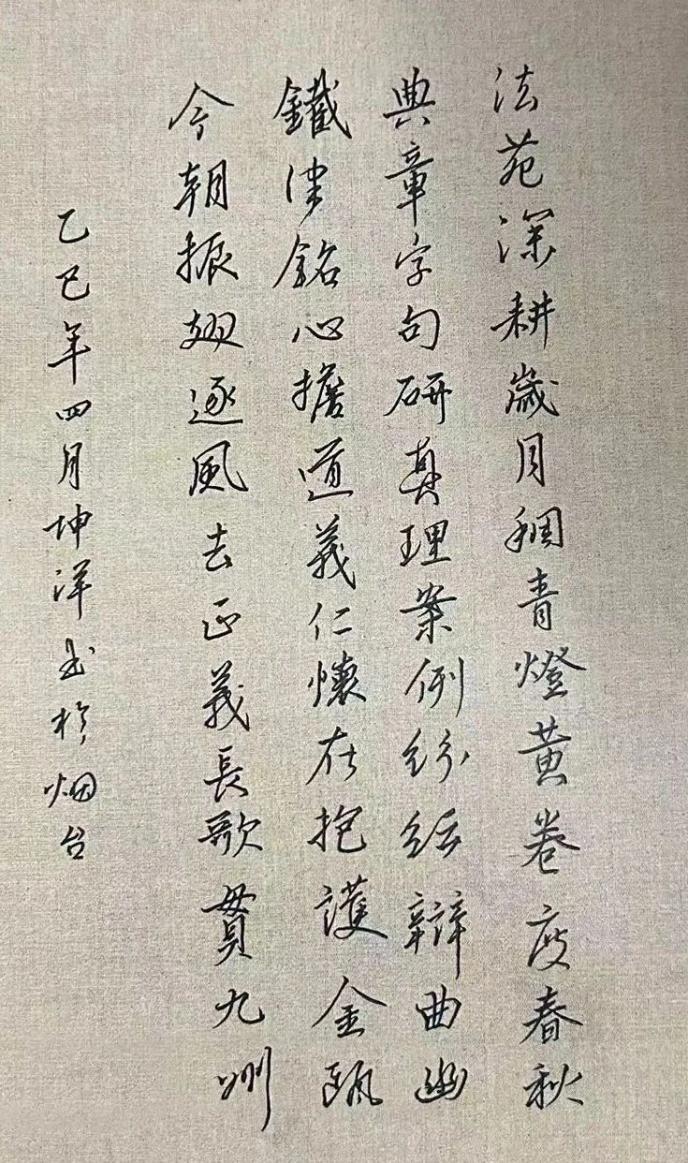 法苑深耕歲月稠青燈黄卷度春秋
典章字句研真理案例紛紜辯曲幽
鐵律銘心擔道義仁懷在抱護金甌
今朝振翅逐風去正義長歌貫九州
乙巳年四月坤洋书於烟台